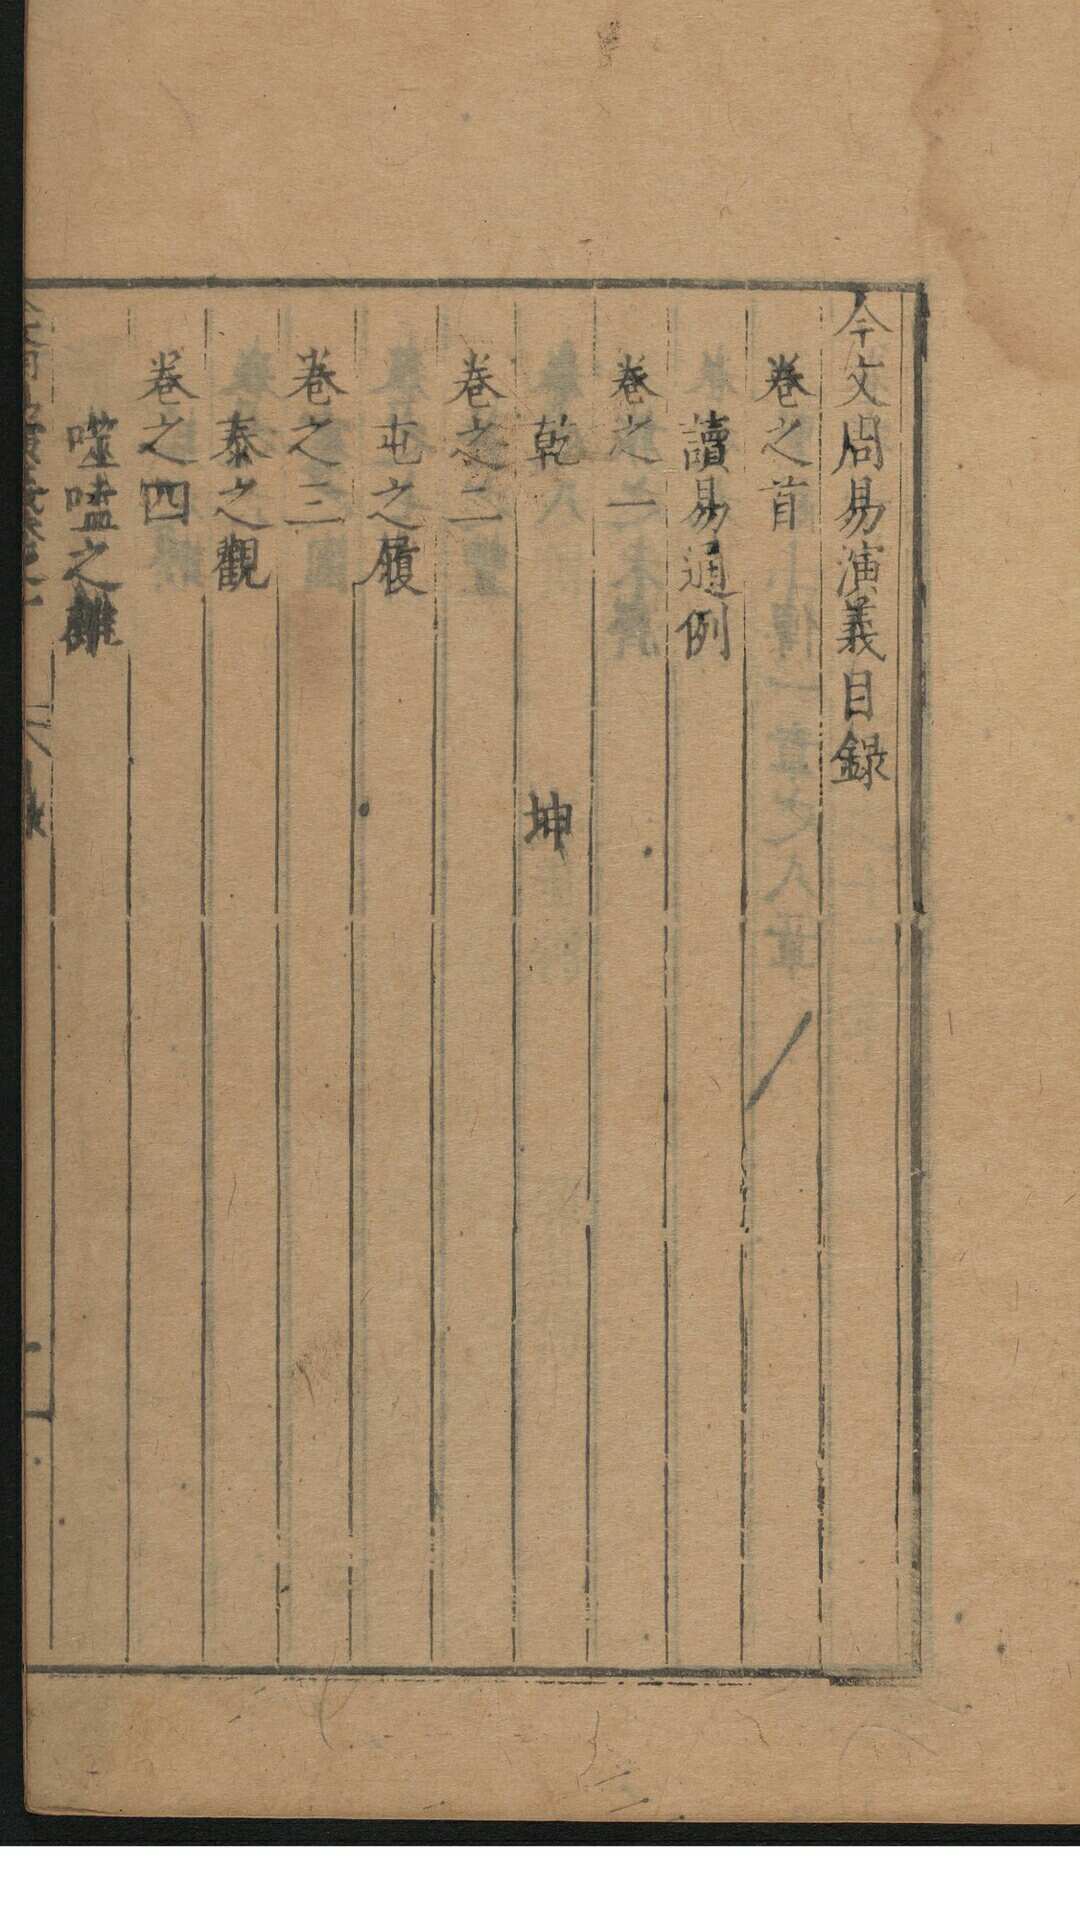 今文周易演義目錄
卷之首
讀易通例
卷之一
乾 坤
卷之二
屯之履
卷之三
泰之觀
卷之四
噬嗑之離